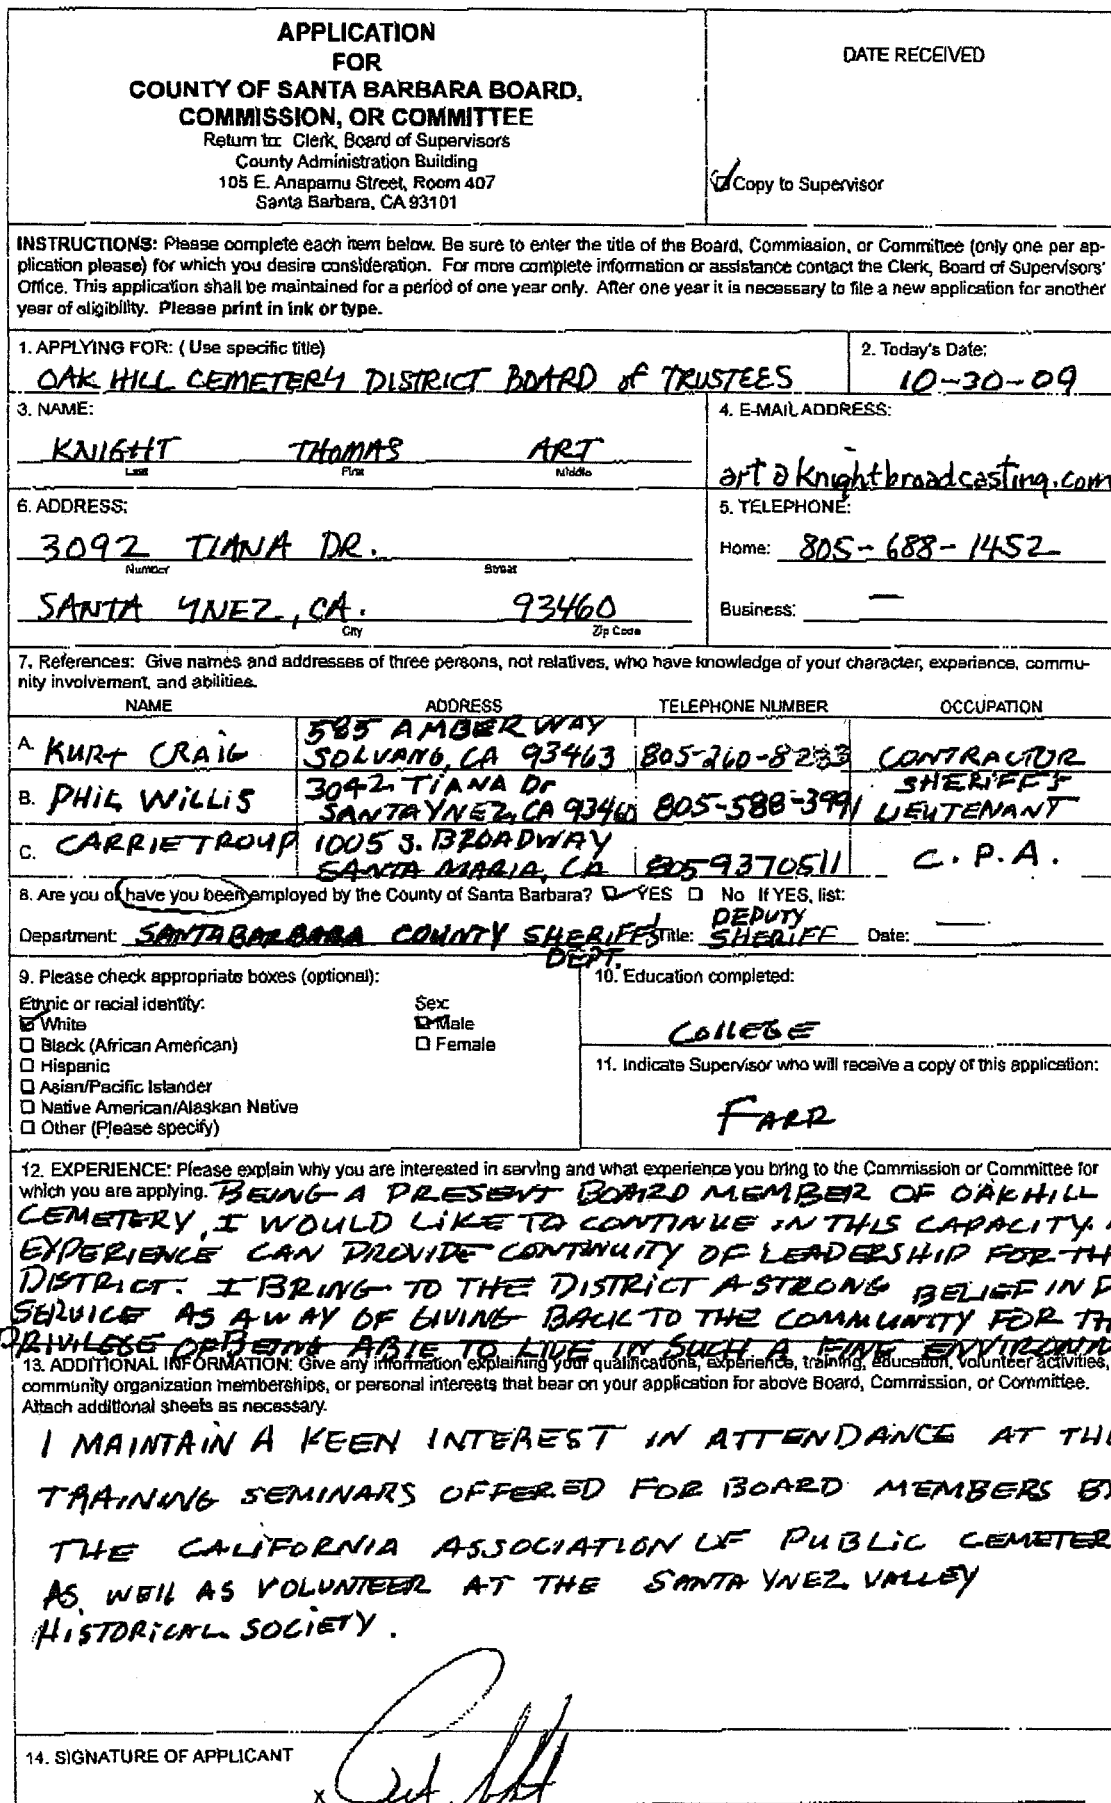 APPLICATION
FOR
COUNTY OF SANTA BARBARA BOARD,
COMMISSION, OR COMMITTEE
Return to: Clerk, Board of Supervisors
County Administration Building
105 E. Anapamu Street, Room 407
Santa Barbara, CA 93101
DATE RECEIVED
Copy to Supervisor
INSTRUCTIONS: Please complete each item below. Be sure to enter the title of the Board, Commission, or Committee (only one per ap-
plication please) for which you desire consideration. For more complete information or assistance contact the Clerk, Board of Supervisors'
Office. This application shall be maintained for a period of one year only. After one year it is necessary to file a new application for another
year of eligibility. Please print in ink or type.
1. APPLYING FOR: ( Use specific title)
OAK HILL CEMETERY DISTRICT BOARD of TRUSTEES
2. Today's Date:
10-30-09
3. NAME:
KNIGHT THOMAS ART
Last First Middle
4. E-MAIL ADDRESS:
art@knightbroadcasting.com
6. ADDRESS:
3092 TIANA DR.
Number Street
SANTA YNEZ, CA. 93460
City Zip Code
5. TELEPHONE:
Home: 805-688-1452
Business: —
7. References: Give names and addresses of three persons, not relatives, who have knowledge of your character, experience, commu-
nity involvement, and abilities.
NAME ADDRESS TELEPHONE NUMBER OCCUPATION
A. KURT CRAIG 585 AMBER WAY
SOLVANG, CA 93463 805-260-8233 CONTRACTOR
B. PHIL WILLIS 3042 TIANA Dr SHERIFF'S
SANTA YNEZ, CA 93460 805-588-3991 LIEUTENANT
C. CARRIE TROUP 1005 S. BROADWAY
SANTA MARIA, CA 805 9370511 C.P.A.
8. Are you or have you been employed by the County of Santa Barbara? YES No If YES, list:
Department: SANTA BARBARA COUNTY SHERIFF'S DEPT. Title: DEPUTY SHERIFF Date: —
9. Please check appropriate boxes (optional):
Ethnic or racial identity: Sex:
White Male
Black (African American) Female
Hispanic
Asian/Pacific Islander
Native American/Alaskan Native
Other (Please specify)
10. Education completed:
COLLEGE
11. Indicate Supervisor who will receive a copy of this application:
FARR
12. EXPERIENCE: Please explain why you are interested in serving and what experience you bring to the Commission or Committee for
which you are applying. BEING A PRESENT BOARD MEMBER OF OAK HILL
CEMETERY, I WOULD LIKE TO CONTINUE IN THIS CAPACITY.
EXPERIENCE CAN PROVIDE CONTINUITY OF LEADERSHIP FOR TH
DISTRICT. I BRING TO THE DISTRICT A STRONG BELIEF IN
SERVICE AS A WAY OF GIVING BACK TO THE COMMUNITY FOR TH
PRIVILEGE OF BEING ABLE TO LIVE IN SUCH A FINE ENVIRONM
13. ADDITIONAL INFORMATION: Give any information explaining your qualifications, experience, training, education, volunteer activities,
community organization memberships, or personal interests that bear on your application for above Board, Commission, or Committee.
Attach additional sheets as necessary.
I MAINTAIN A KEEN INTEREST IN ATTENDANCE AT THE
TRAINING SEMINARS OFFERED FOR BOARD MEMBERS BY
THE CALIFORNIA ASSOCIATION OF PUBLIC CEMETER
AS WELL AS VOLUNTEER AT THE SANTA YNEZ VALLEY
HISTORICAL SOCIETY.
14. SIGNATURE OF APPLICANT
x